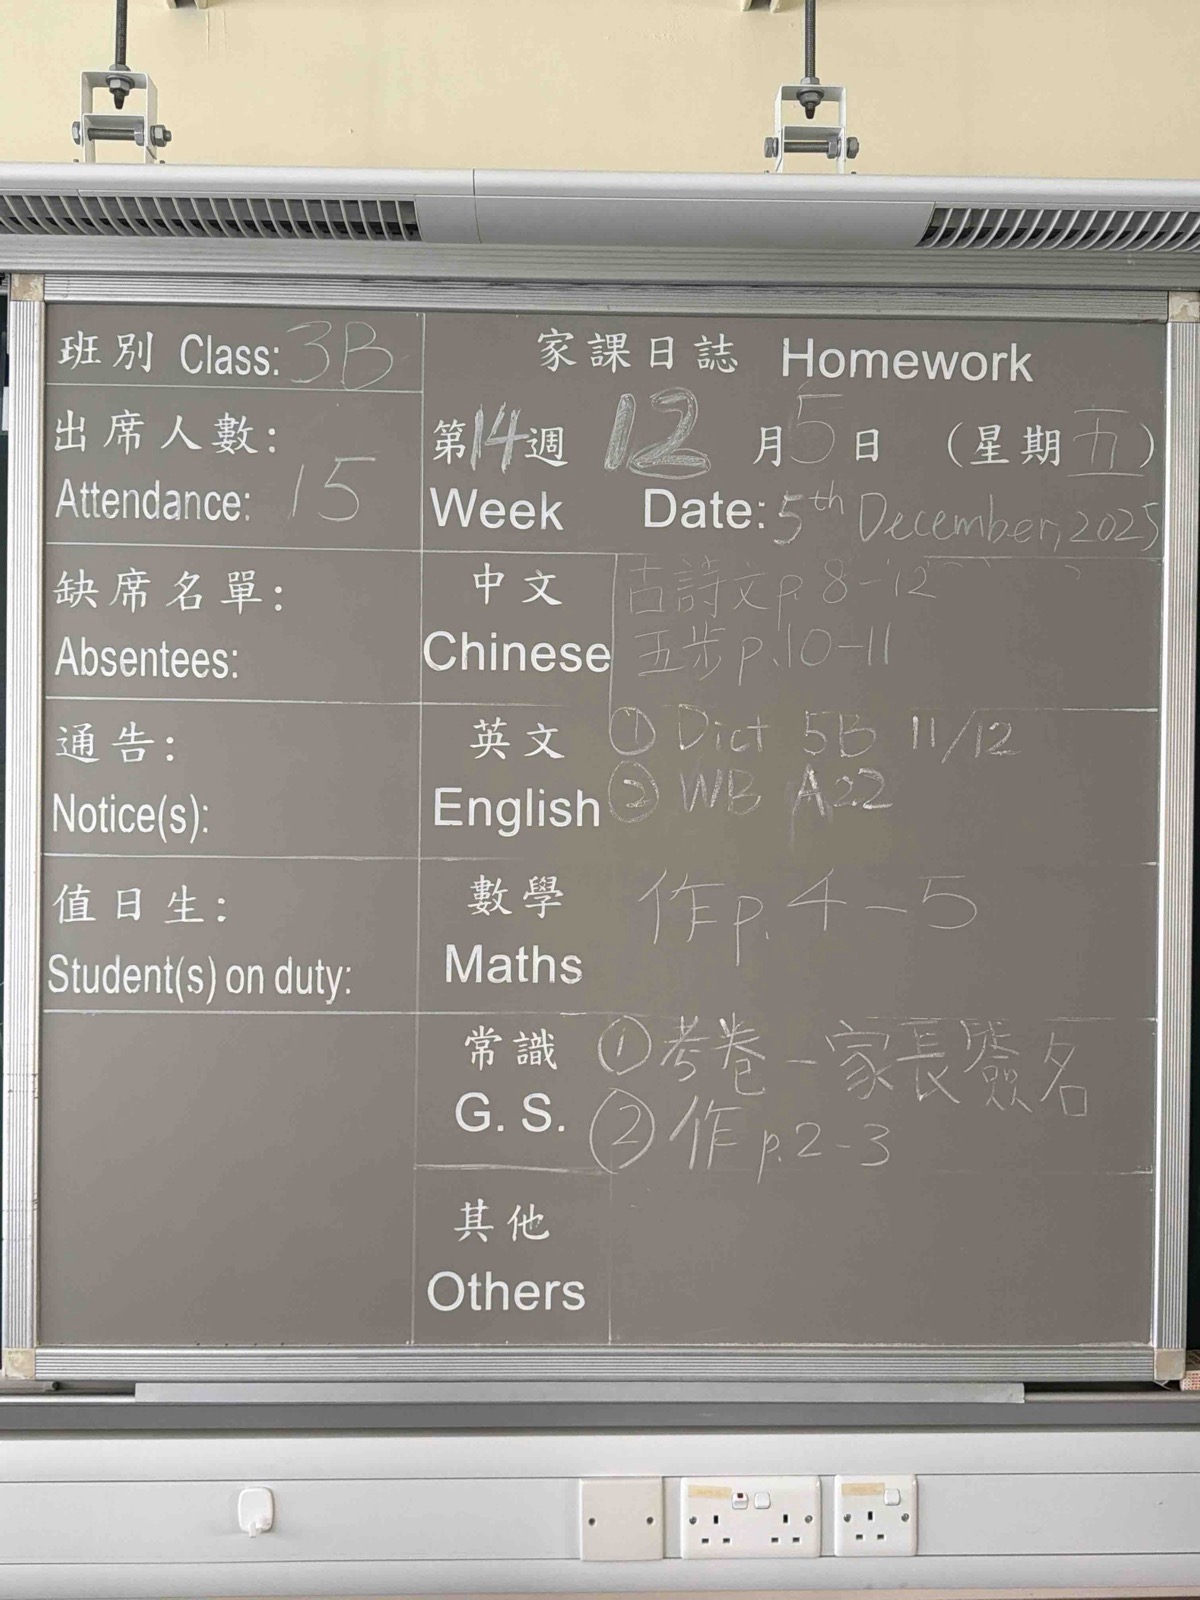 班別 Class: 3B
出席人數:
Attendance: 15
缺席名單:
Absentees:
通告:
Notice(s):
值日生:
Student(s) on duty:
家課日誌 Homework
第14週 12月5日 (星期五)
Week Date: 5th December, 2025
中文 古詩文 p.8-12
Chinese 五步 p.10-11
英文 ① Dict 5B 11/12
English ② WB A22
數學 作 p. 4-5
Maths
常識 ① 考卷-家長簽名
G. S. ② 作 p.2-3
其他
Others